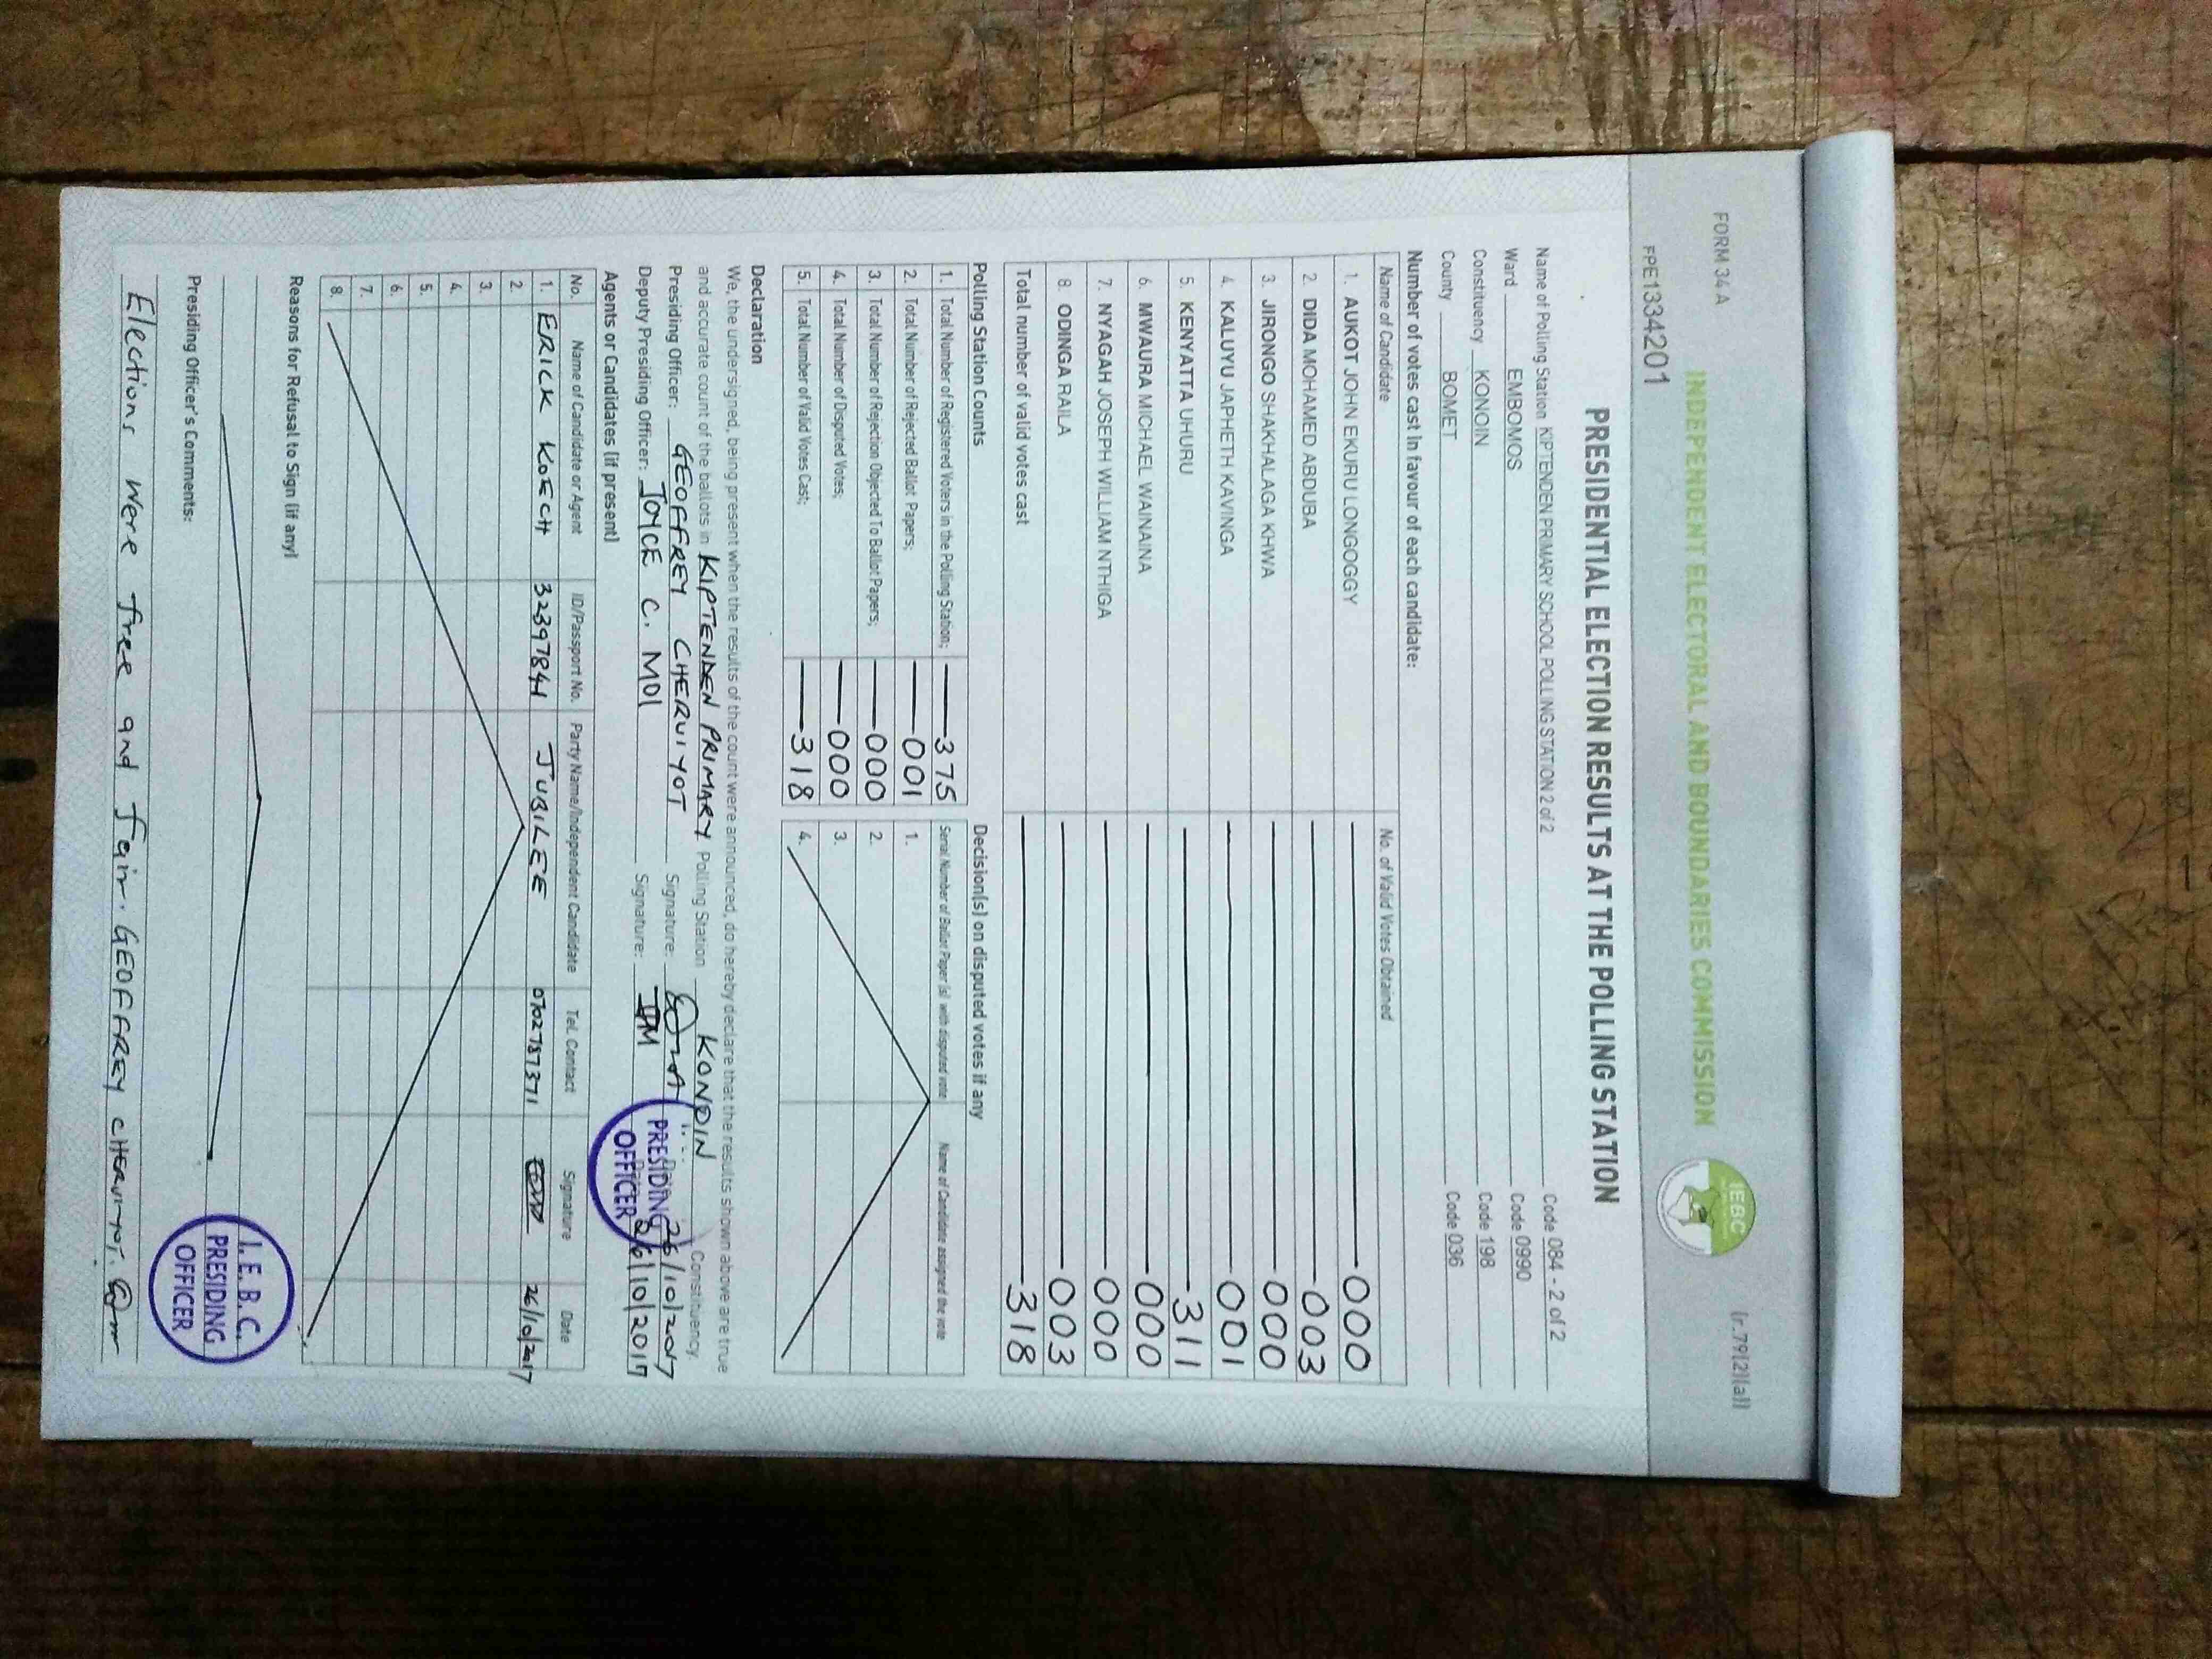 FORM 34 A
(r.79(2)(a))
INDEPENDENT ELECTORAL AND BOUNDARIES COMMISSION
IEBC
FPE1334201
PRESIDENTIAL ELECTION RESULTS AT THE POLLING STATION
Name of Polling Station KIPTENDEN PRIMARY SCHOOL POLLING STATION 2 of 2 Code 084 - 2 of 2
Ward EMBOMOS Code 0990
Constituency KONOIN Code 198
County BOMET Code 036
Number of votes cast in favour of each candidate:
Name of Candidate No. of Valid Votes Obtained
1. AUKOT JOHN EKURU LONGOGGY 000
2. DIDA MOHAMED ABDUBA 003
3. JIRONGO SHAKHALAGA KHWA 000
4. KALUYU JAPHETH KAVINGA 001
5. KENYATTA UHURU 311
6. MWAURA MICHAEL WAINAINA 000
7. NYAGAH JOSEPH WILLIAM NTHIGA 000
8. ODINGA RAILA 003
Total number of valid votes cast 318
Polling Station Counts Decision(s) on disputed votes if any
1. Total Number of Registered Voters in the Polling Station; 375 Serial Number of Ballot Paper (s) with disputed vote Name of Candidate assigned the vote
2. Total Number of Rejected Ballot Papers; 001 1.
3. Total Number of Rejection Objected To Ballot Papers; 000 2.
4. Total Number of Disputed Votes; 000 3.
5. Total Number of Valid Votes Cast; 318 4.
Declaration
We, the undersigned, being present when the results of the count were announced, do hereby declare that the results shown above are true
and accurate count of the ballots in KIPTENDEN PRIMARY Polling Station KONOIN Constituency.
Presiding Officer: GEOFFREY CHERUIYOT Signature: 26/10/2017
Deputy Presiding Officer: JOYCE C. MOI Signature: JM 26/10/2017
PRESIDING
OFFICER
Agents or Candidates (if present)
No. Name of Candidate or Agent ID/Passport No. Party Name/Independent Candidate Tel. Contact Signature Date
1. ERICK KOECH 32397841 JUBILEE 0702787371 26/10/2017
2.
3.
4.
5.
6.
7.
8.
Reasons for Refusal to Sign (if any)
Presiding Officer's Comments:
I.E.B.C.
PRESIDING
OFFICER
Elections were free and fair. GEOFFREY CHERUIYOT.